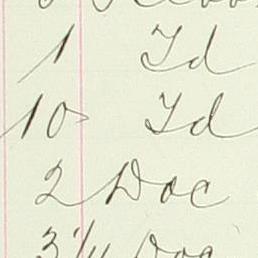 1 Id
10 Id
2 Doc
3 1/4 Doc